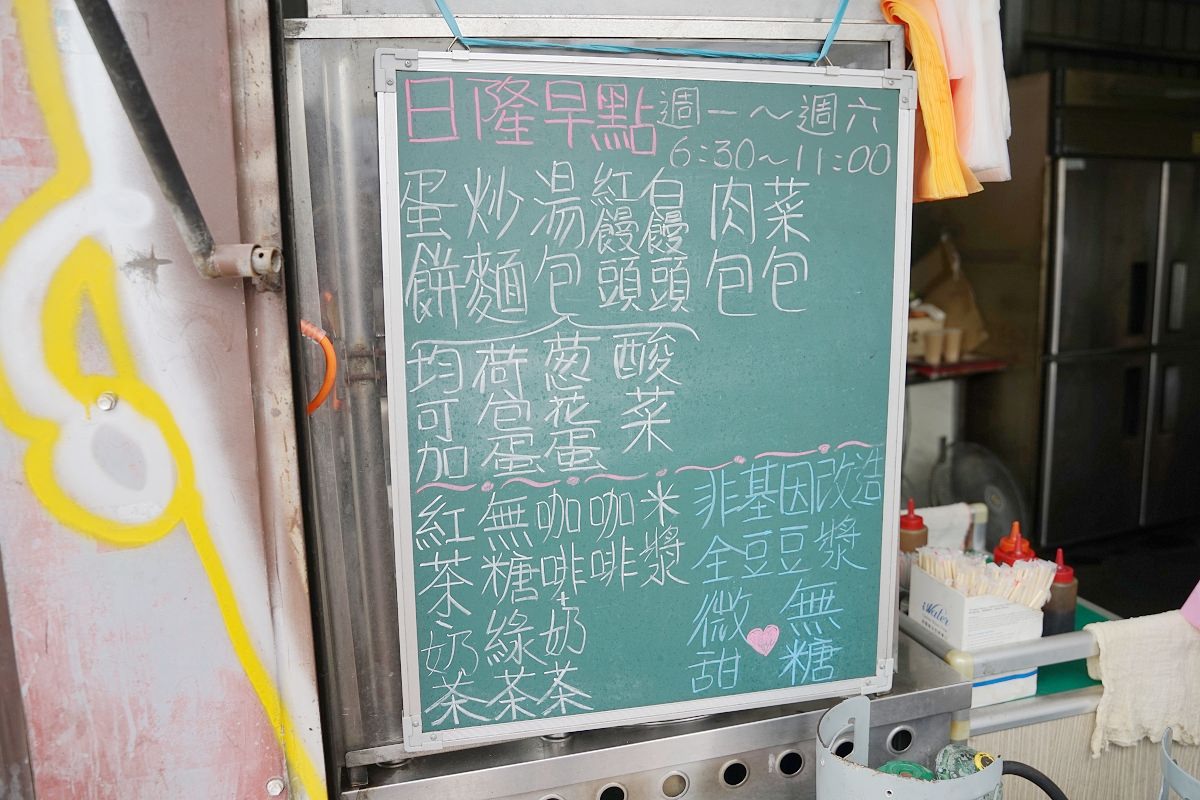 日隆早點
週一～週六
6:30~11:00
蛋餅
炒麵
湯包
紅饅頭
白饅頭
肉包
菜包
均可加
荷包蛋
蔥花蛋
酸菜
紅茶、奶茶
無糖綠茶
咖啡+奶茶
咖啡
米漿
非基因改造
全豆豆漿
微甜
無糖
Water